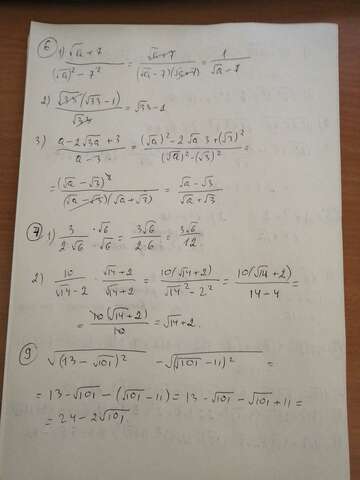 6 1) √a + 7 / (√a)² − 7² = √a + 7 / (√a − 7)(√a + 7) = 1 / √a − 7
2) √33 (√33 − 1) / √33 = √33 − 1
3) a − 2√3a + 3 / a − 3 = (√a)² − 2√a 3 + (√3)² / (√a)² − (√3)² =
= (√a − √3)² / (√a − √3)(√a + √3) = √a − √3 / √a + √3
7 1) 3 / 2√6 · √6 / √6 = 3√6 / 2·6 = 3√6 / 12
2) 10 / √14 − 2 · √14 + 2 / √14 + 2 = 10(√14 + 2) / √14² − 2² = 10(√14 + 2) / 14 − 4 =
= 10(√14 + 2) / 10 = √14 + 2.
9 √(13 − √101)² − √(√101 − 11)² =
= 13 − √101 − (√101 − 11) = 13 − √101 − √101 + 11 =
= 24 − 2√101.